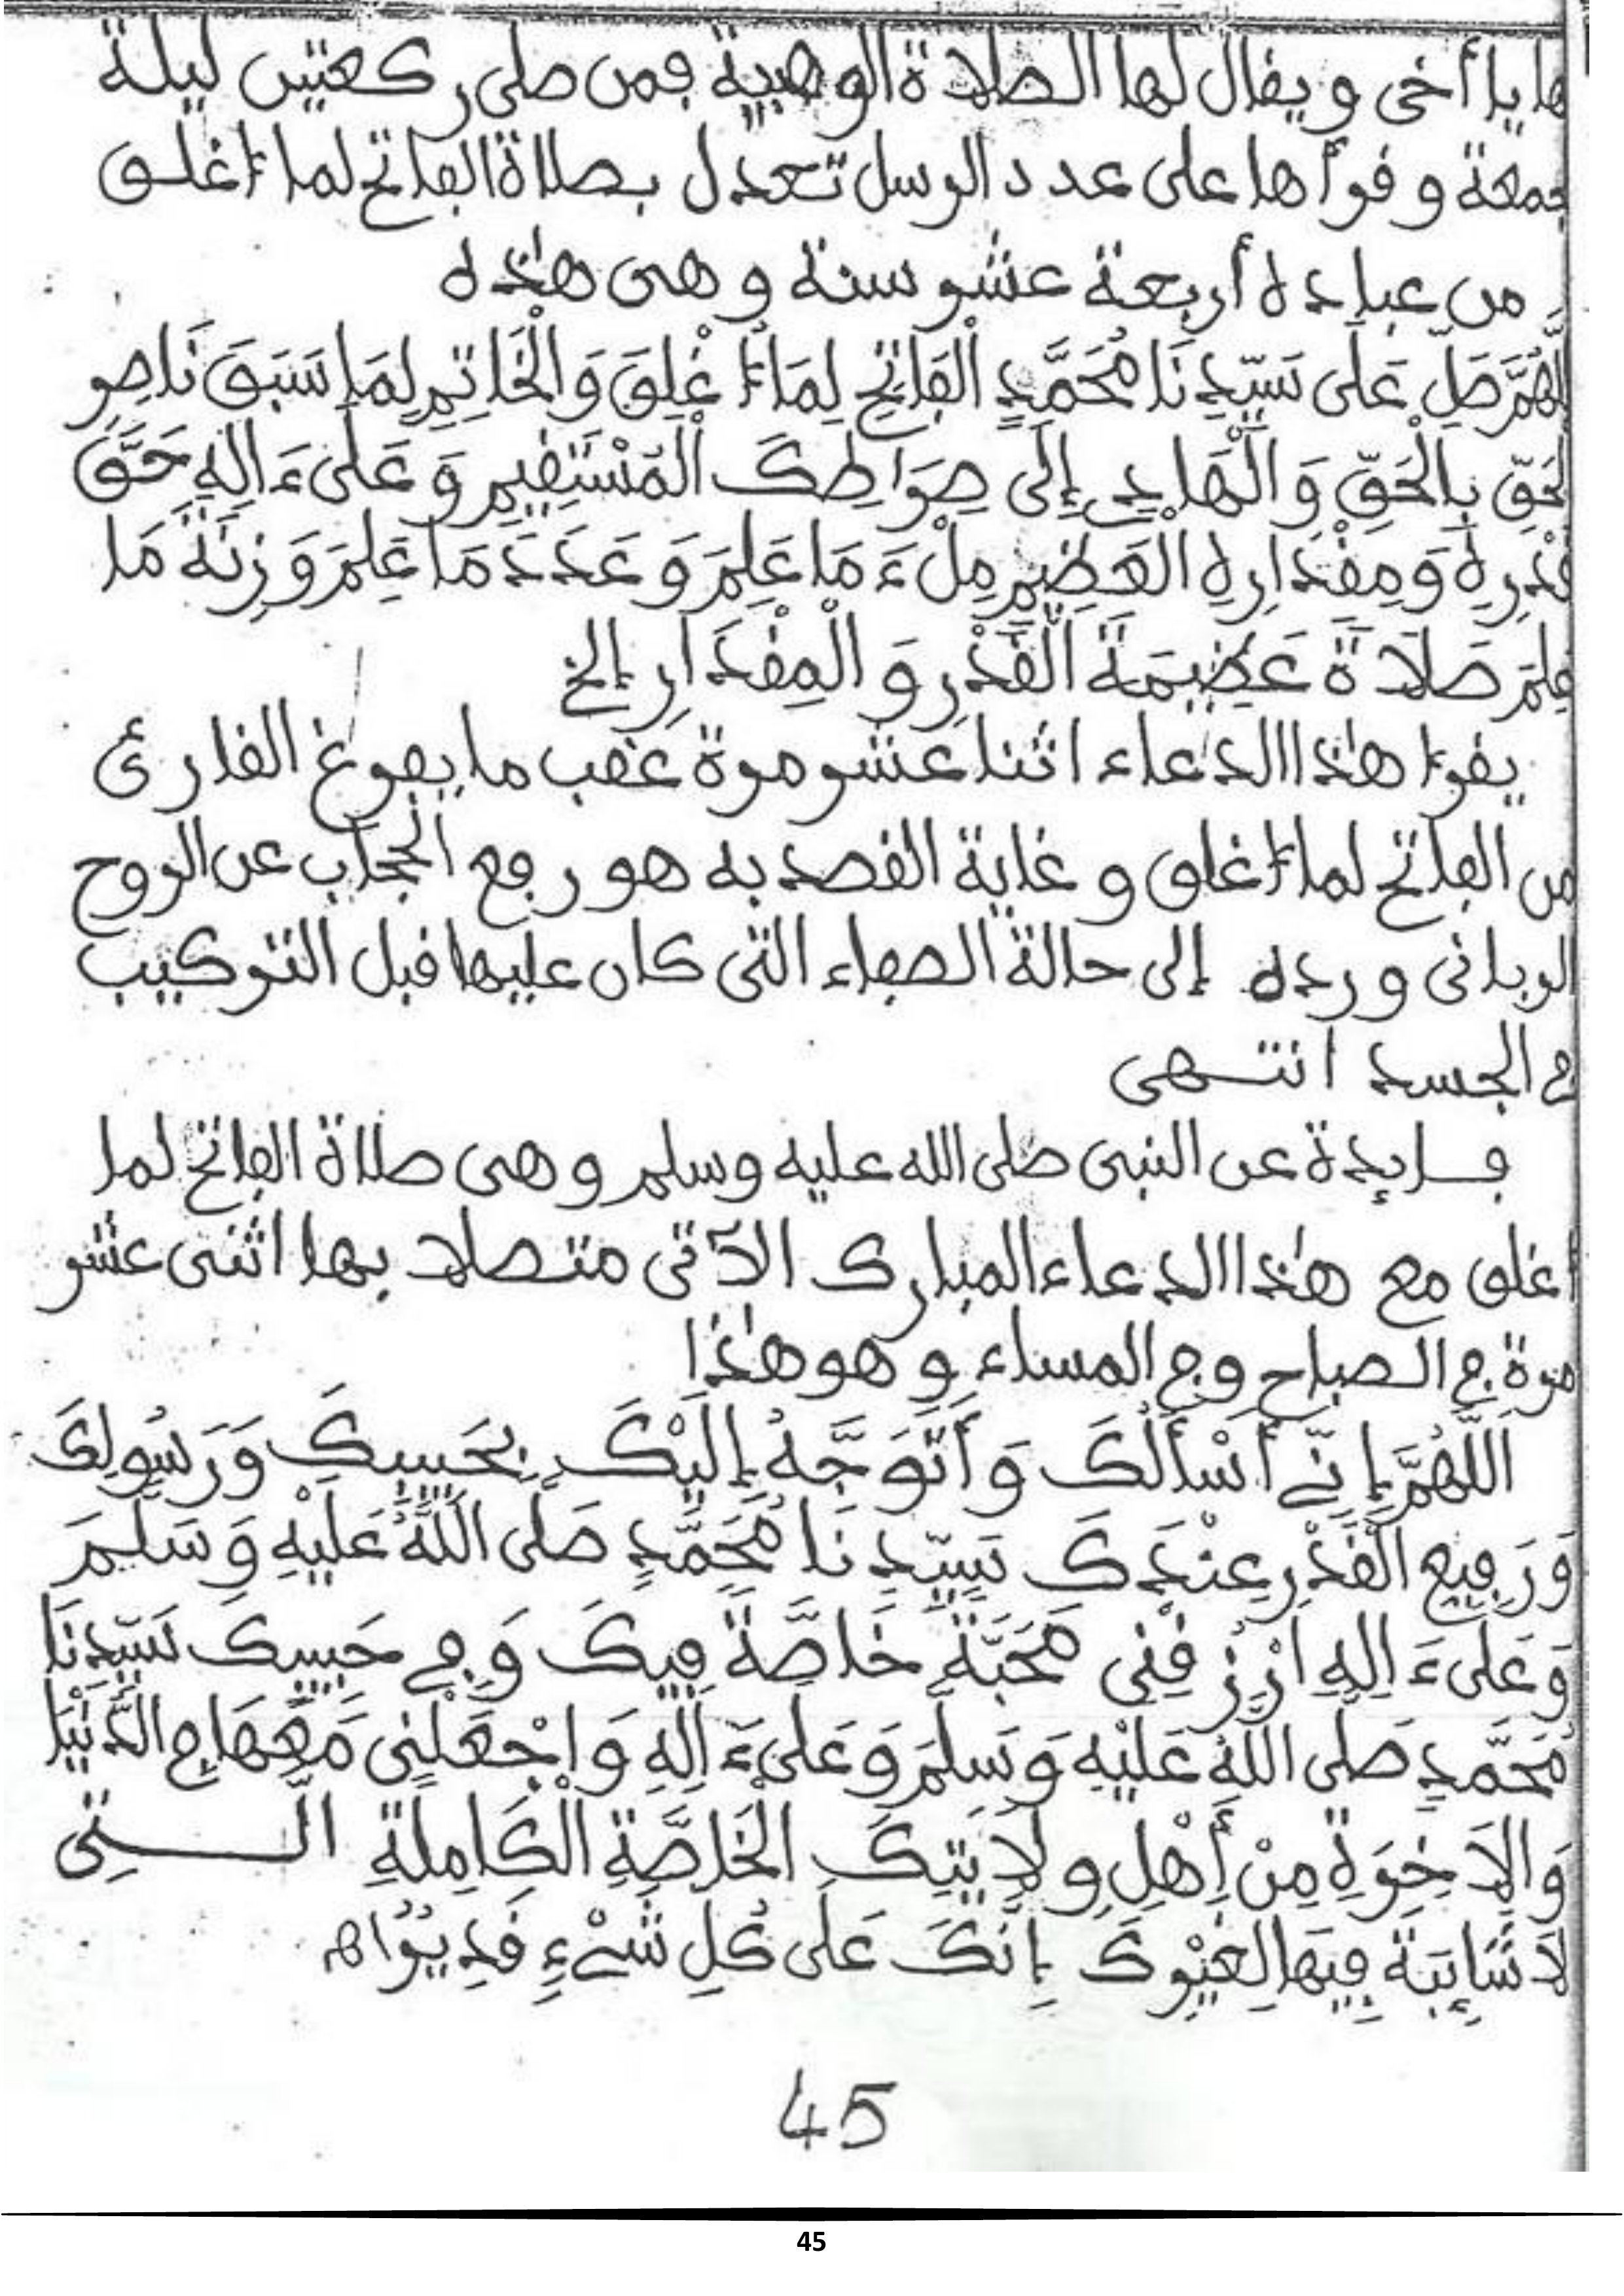 ها يا أخى ويقال لها الصلاة الوهبية فمن صلى ركعتين ليلة
جمعة وقرأها على عدد الرسل تعدل بصلاة الفاتح لما أغلق
من عبادة أربعة عشر سنة وهى هٰذه
اللَّهُمَّ صَلِّ عَلَى سَيِّدِنَا مُحَمَّدٍ الْفَاتِحِ لِمَا أُغْلِقَ وَالْخَاتِمِ لِمَا سَبَقَ نَاصِرِ
الْحَقِّ بِالْحَقِّ وَالْهَادِي إِلَى صِرَاطِكَ الْمُسْتَقِيمِ وَعَلَى ءَالِهِ حَقَّ
قَدْرِهِ وَمِقْدَارِهِ الْعَظِيمِ مِلْءَ مَا عَلِمَ وَعَدَدَ مَا عَلِمَ وَزِنَةَ مَا
عَلِمَ صَلَاةً عَظِيمَةَ الْقَدْرِ وَالْمِقْدَارِ إلخ
يقرأ هٰذا الدعاء اثنا عشر مرة عقب ما يفرغ القارئ
من الفاتح لما أغلق وغاية القصد به هو رفع الحجاب عن الروح
الربانى ورده إلى حالة الصفاء التى كان عليها قبل التركيب
في الجسد انتهى
فايدة عن النبى صلى الله عليه وسلم وهى صلاة الفاتح لما
أغلق مع هٰذا الدعاء المبارك الآتى متصلا بها اثنى عشر
مرة في الصباح وفي المساء وهو هٰذا
اَللَّهُمَّ إِنِّي أَسْأَلُكَ وَأَتَوَجَّهُ إِلَيْكَ بِحَبِيبِكَ وَرَسُولِكَ
وَرَفِيعِ الْقَدْرِ عِنْدَكَ سَيِّدِنَا مُحَمَّدٍ صَلَّى اللَّهُ عَلَيْهِ وَسَلَّمَ
وَعَلَى ءَالِهِ ارْزُقْنِى مَحَبَّةً خَاصَّةً فِيكَ وَفِي حَبِيبِكَ سَيِّدِنَا
مُحَمَّدٍ صَلَّى اللَّهُ عَلَيْهِ وَسَلَّمَ وَعَلَى ءَالِهِ وَاجْعَلْنِى مَعَهَا فِي الدُّنْيَا
وَالْآخِرَةِ مِنْ أَهْلِ وِلَايَتِكَ الْخَاصَّةِ الْكَامِلَةِ الَّتِى
لَا شَائِبَةَ فِيهَا لِغَيْرِكَ إِنَّكَ عَلَى كُلِّ شَىْءٍ قَدِيرٌ اه
45
45